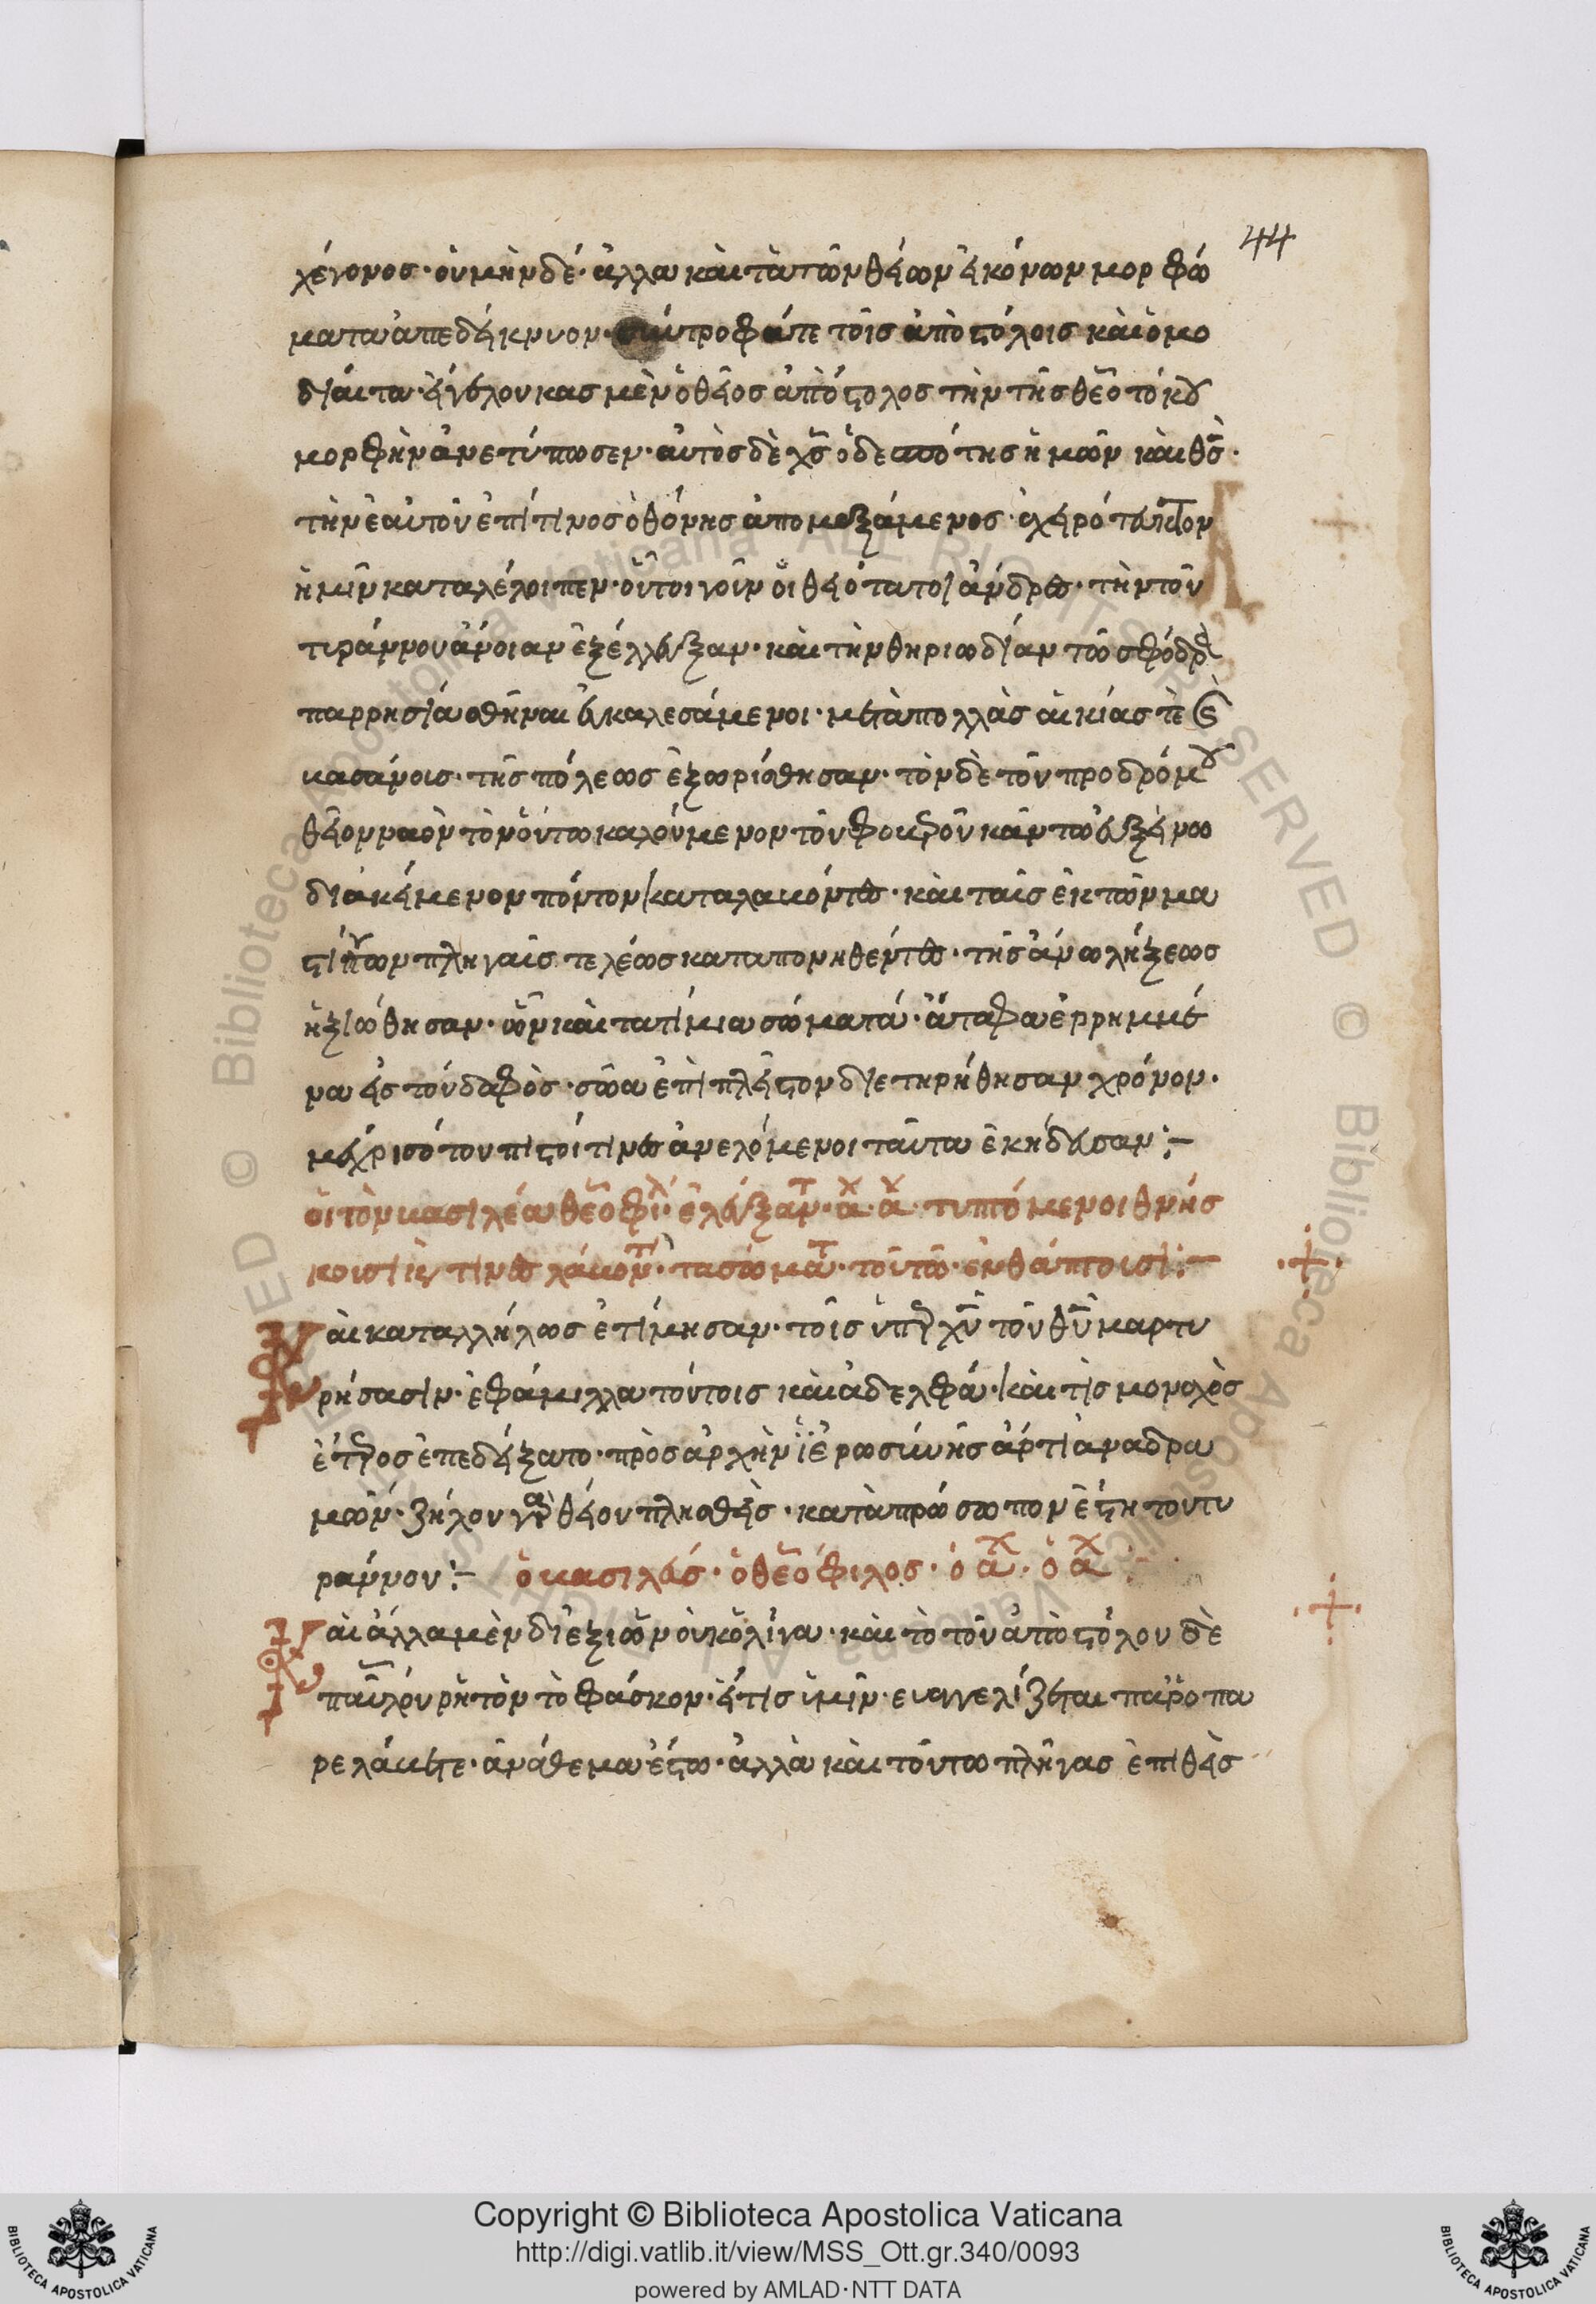 44
χέγονος· οὐ μὴν δέ· ἀλλα καὶ τὰ τῶν θείων εἰκόνων μορφώ
ματα ἀπεδείκνυον· σύντροφά τε τοῖς ἀποστόλοις καὶ ὁμο
δίαιτα· εἴγε λουκας μὲν ὁ θεῖος ἀπόστολος τὴν τῆς θεοτόκου
μορφὴν ἀνετύπωσεν· αὐτὸς δὲ χς ὁ δεσπότης ἡμῶν καὶ θς·
τὴν ἑαυτοῦ ἐπί τινος ὀθόνης ἀπομαξάμενος· ἀχειρότευκτον
ἡμῖν καταλέλοιπεν· οὗτοι γοῦν οἱ θειότατοι ἄνδρες· τὴν τοῦ
τυράννου ἄνοιαν ἐξέλλεγξαν· καὶ τὴν θηριωδίαν τῶ σφόδρα
παρρησιασθῆναι ἐκκαλεσάμενοι· μετὰ πολλὰς αἰκίας τὲ καὶ
βασάνοις· τῆς πόλεως ἐξωρίσθησαν· τὸν δὲ τοῦ προδρόμου
θεῖον ναὸν τὸν οὕτω καλούμενον τοῦ φοβεροῦ κἀν τῶ εὐξείνω
διακείμενον πόντον καταλαβόντες· καὶ ταῖς ἐκ τῶν μα
στίγων πληγαῖς τελέως καταπονηθέντες· τῆς ἄνω λήξεως
ἠξιώθησαν· ὧν καὶ τα τίμια σώματα· ἄταφα ἐρρημμέ
να εἰς τοὔδαφὸς· σῶα ἐπὶ πλεῖστον διετηρήθησαν χρόνον·
μέχρις ότου πιστοί τινες ἀνελόμενοι ταῦτα ἐκήδευσαν:–
οἱ τὸν βασιλέα θεόφιλ· ἐλέγξαντ· α χ· α χ· τυπτόμενοι θνήσ
κουσι· εἶς τινες λάβοντ· τα σώματ· τούτω· ἐνθάπτουσι:–
Καὶ καταλλήλως ἐτίμησαν· τοῖς ὑπὲρ χυ τοῦ θυ μαρτυ
ρήσασιν· ἐφάμιλλα τούτοις καὶ ἀδελφά· καὶ τὶς μοναχὸς
ἕτερος ἐπεδείξατο· πρὸς ἀρχὴν ἱερωσύνης ἄρτι ἀναδρα
μῶν· ζήλου γὰρ θείου πλησθεὶς· κατὰ πρόσωπον ἔστη του τυ
ράννου:– ὁ βασιλεύς· ὁ θεόφιλος· ὁ α χ· ὁ α χ:–
Καὶ ἄλλα μὲν διεξιὼν οὐκ ὀλίγα· καὶ τὸ τοῦ ἀποστόλου δὲ
παύλου ρητὸν τὸ φάσκον· εἴ τις ὑμῖν· ευαγγελίζεται παρ' ὃ πα
ρελάβετε· ἀνάθεμα ἔστω· ἀλλὰ καὶ τούτω πληγας ἐπιθεὶς
Copyright © Biblioteca Apostolica Vaticana
http://digi.vatlib.it/view/MSS_Ott.gr.340/0093
powered by AMLAD·NTT DATA